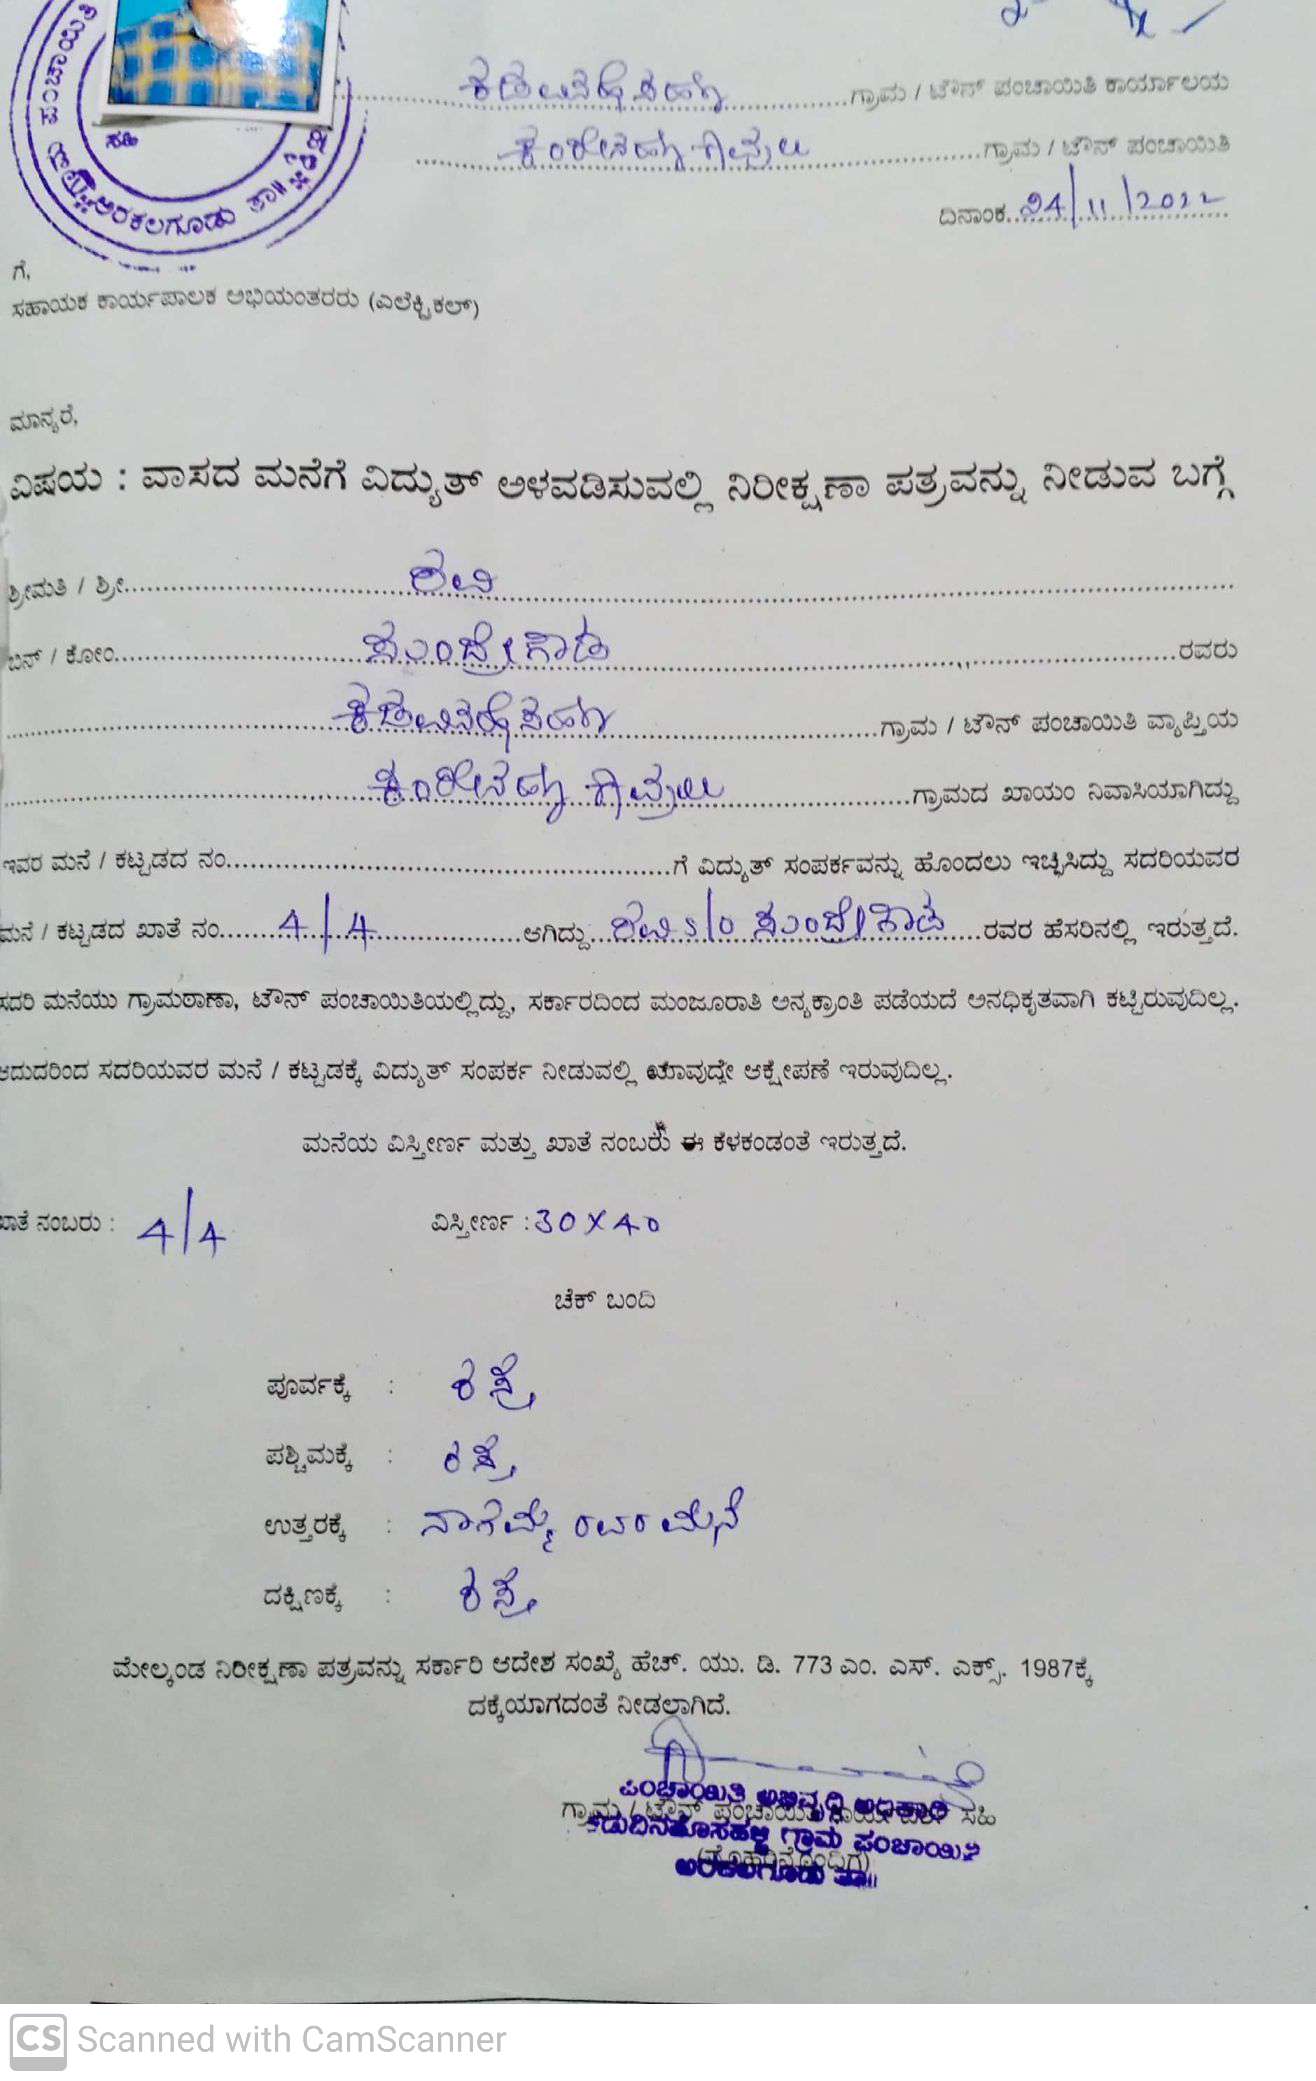 ಪಂಚಾಯಿತಿ
ಅರಕಲಗೂಡು ತಾ॥
ಸಹಿ
ಗ್ರಾಮ / ಟೌನ್ ಪಂಚಾಯಿತಿ ಕಾರ್ಯಾಲಯ
ಗ್ರಾಮ / ಟೌನ್ ಪಂಚಾಯಿತಿ
ದಿನಾಂಕ 24/11/2022
ಗೆ,
ಸಹಾಯಕ ಕಾರ್ಯಪಾಲಕ ಅಭಿಯಂತರರು (ಎಲೆಕ್ಟ್ರಿಕಲ್)
ಮಾನ್ಯರೆ,
ವಿಷಯ : ವಾಸದ ಮನೆಗೆ ವಿದ್ಯುತ್ ಅಳವಡಿಸುವಲ್ಲಿ ನಿರೀಕ್ಷಣಾ ಪತ್ರವನ್ನು ನೀಡುವ ಬಗ್ಗೆ
ಶ್ರೀಮತಿ / ಶ್ರೀ ರವಿ
ಬಿನ್ / ಕೋಂ ರವರು
ಗ್ರಾಮ / ಟೌನ್ ಪಂಚಾಯಿತಿ ವ್ಯಾಪ್ತಿಯ
ಗ್ರಾಮದ ಖಾಯಂ ನಿವಾಸಿಯಾಗಿದ್ದು
ಇವರ ಮನೆ / ಕಟ್ಟಡದ ನಂ. ಗೆ ವಿದ್ಯುತ್ ಸಂಪರ್ಕವನ್ನು ಹೊಂದಲು ಇಚ್ಛಿಸಿದ್ದು ಸದರಿಯವರ
ಮನೆ / ಕಟ್ಟಡದ ಖಾತೆ ನಂ. 4/4 ಆಗಿದ್ದು ರವಿ s/o ರವರ ಹೆಸರಿನಲ್ಲಿ ಇರುತ್ತದೆ.
ಸದರಿ ಮನೆಯು ಗ್ರಾಮಠಾಣಾ, ಟೌನ್ ಪಂಚಾಯಿತಿಯಲ್ಲಿದ್ದು, ಸರ್ಕಾರದಿಂದ ಮಂಜೂರಾತಿ ಅನ್ಯಕ್ರಾಂತಿ ಪಡೆಯದೆ ಅನಧಿಕೃತವಾಗಿ ಕಟ್ಟಿರುವುದಿಲ್ಲ.
ಆದುದರಿಂದ ಸದರಿಯವರ ಮನೆ / ಕಟ್ಟಡಕ್ಕೆ ವಿದ್ಯುತ್ ಸಂಪರ್ಕ ನೀಡುವಲ್ಲಿ ಯಾವುದೇ ಆಕ್ಷೇಪಣೆ ಇರುವುದಿಲ್ಲ.
ಮನೆಯ ವಿಸ್ತೀರ್ಣ ಮತ್ತು ಖಾತೆ ನಂಬರು ಈ ಕೆಳಕಂಡಂತೆ ಇರುತ್ತದೆ.
ಖಾತೆ ನಂಬರು : 4/4 ವಿಸ್ತೀರ್ಣ : 30 X 40
ಚೆಕ್ ಬಂದಿ
ಪೂರ್ವಕ್ಕೆ : ರಸ್ತೆ
ಪಶ್ಚಿಮಕ್ಕೆ : ರಸ್ತೆ
ಉತ್ತರಕ್ಕೆ : ನಾಗಮ್ಮ ರವರ ಮನೆ
ದಕ್ಷಿಣಕ್ಕೆ : ರಸ್ತೆ
ಮೇಲ್ಕಂಡ ನಿರೀಕ್ಷಣಾ ಪತ್ರವನ್ನು ಸರ್ಕಾರಿ ಆದೇಶ ಸಂಖ್ಯೆ ಹೆಚ್. ಯು. ಡಿ. 773 ಎಂ. ಎಸ್. ಎಕ್ಸ್. 1987ಕ್ಕೆ
ದಕ್ಕೆಯಾಗದಂತೆ ನೀಡಲಾಗಿದೆ.
ಪಂಚಾಯಿತಿ ಅಭಿವೃದ್ಧಿ ಅಧಿಕಾರಿ
ಗ್ರಾಮ / ಟೌನ್ ಪಂಚಾಯಿತಿ ಸಹಿ
ಕಡುದಿನಹೊಸಹಳ್ಳಿ ಗ್ರಾಮ ಪಂಚಾಯಿತಿ
(ಮೊಹರಿನೊಂದಿಗೆ)
ಅರಕಲಗೂಡು ತಾ॥
CS Scanned with CamScanner